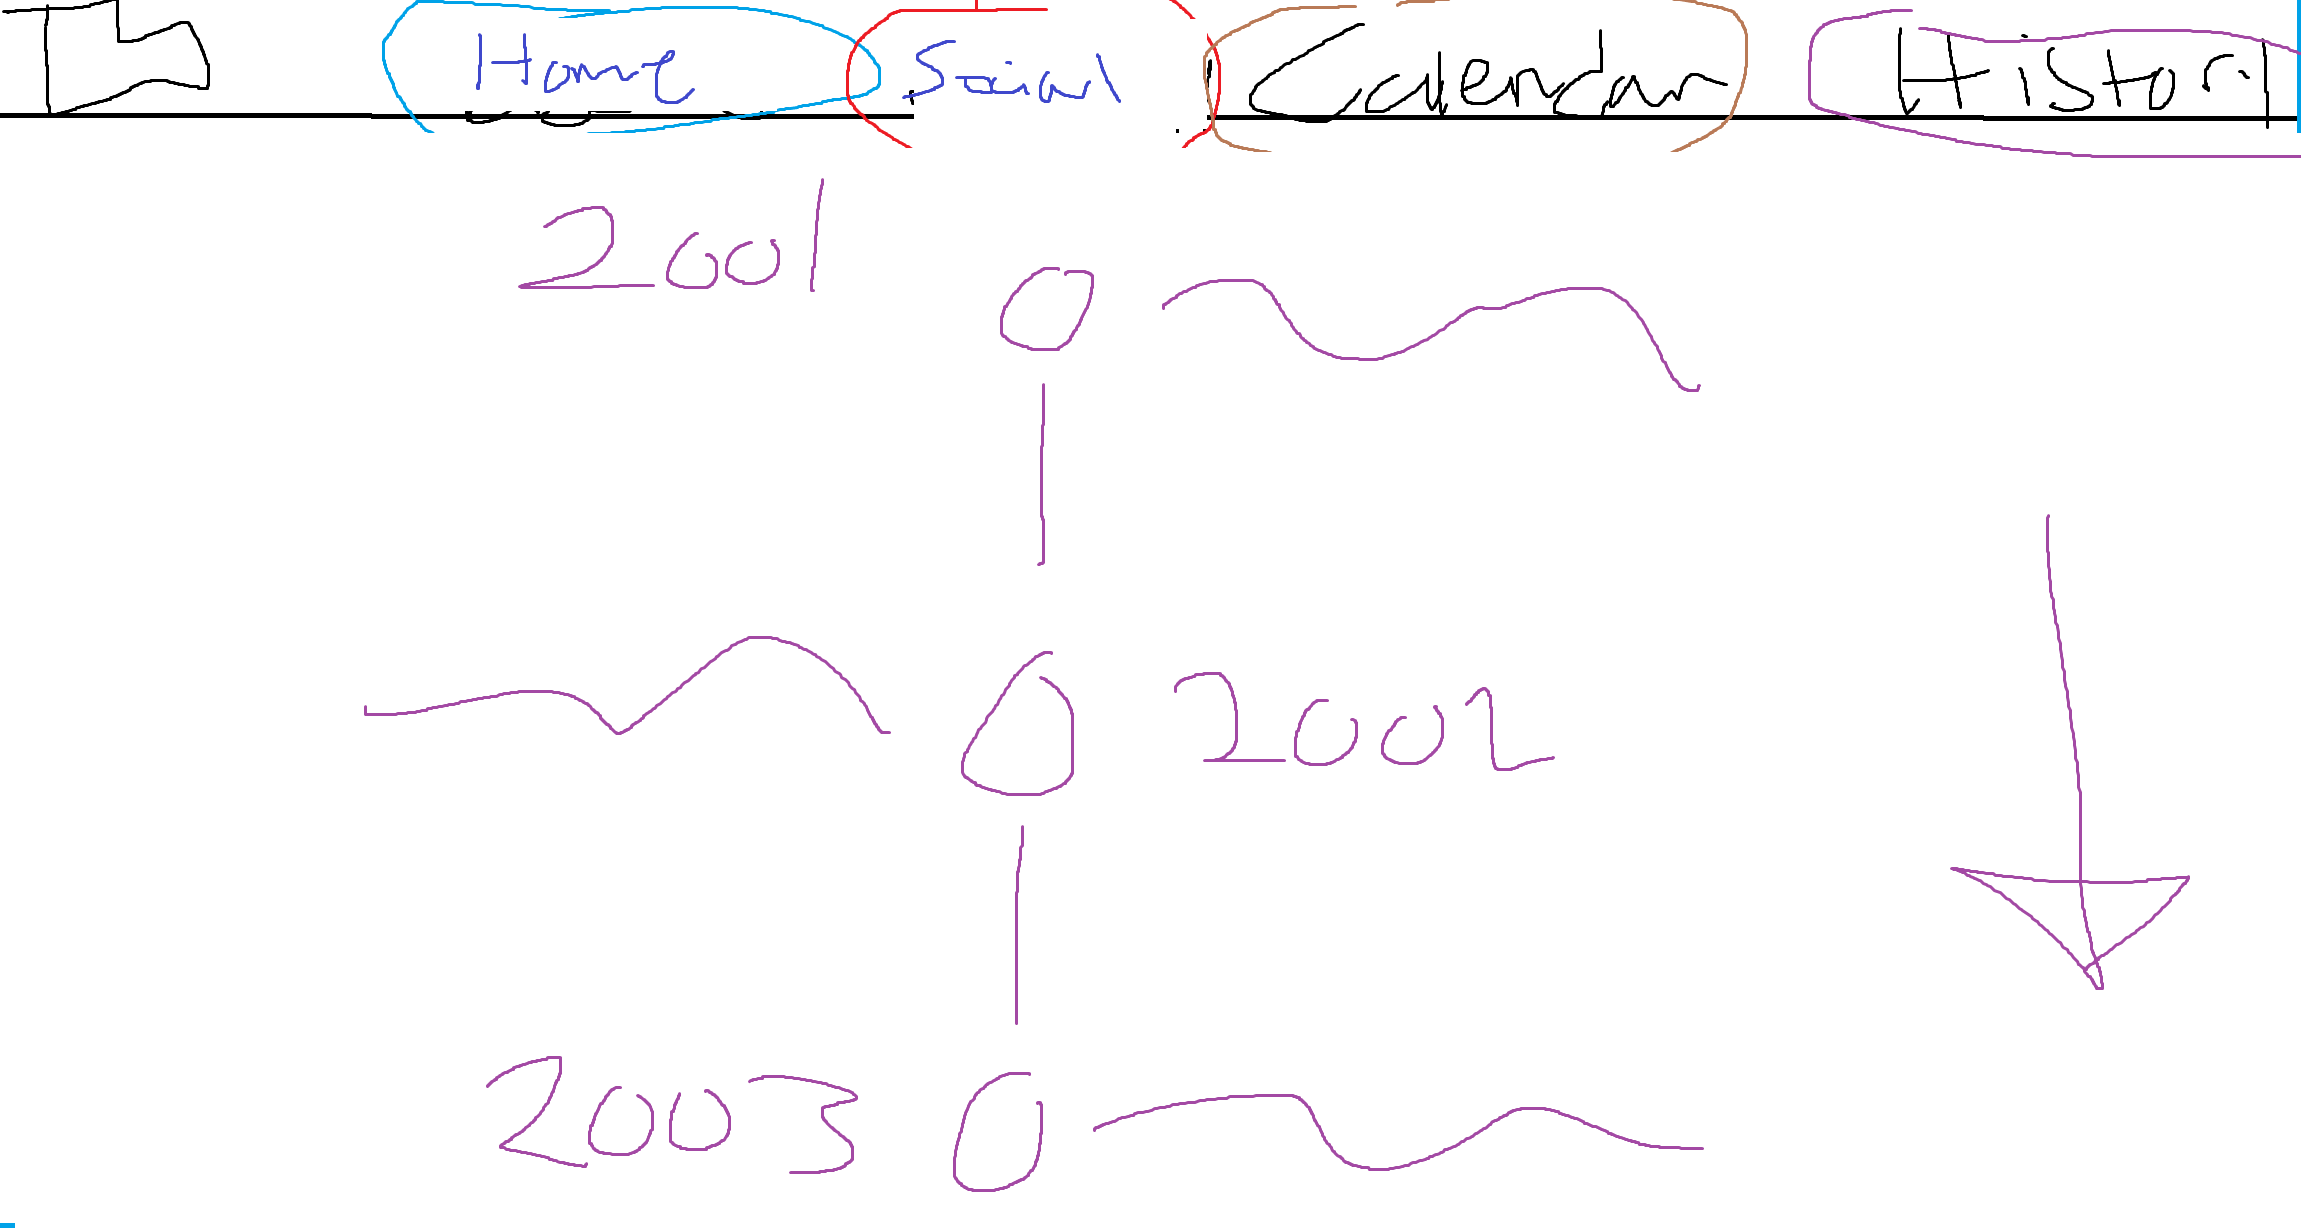 Home Social Calendar History
2001
2002
2003